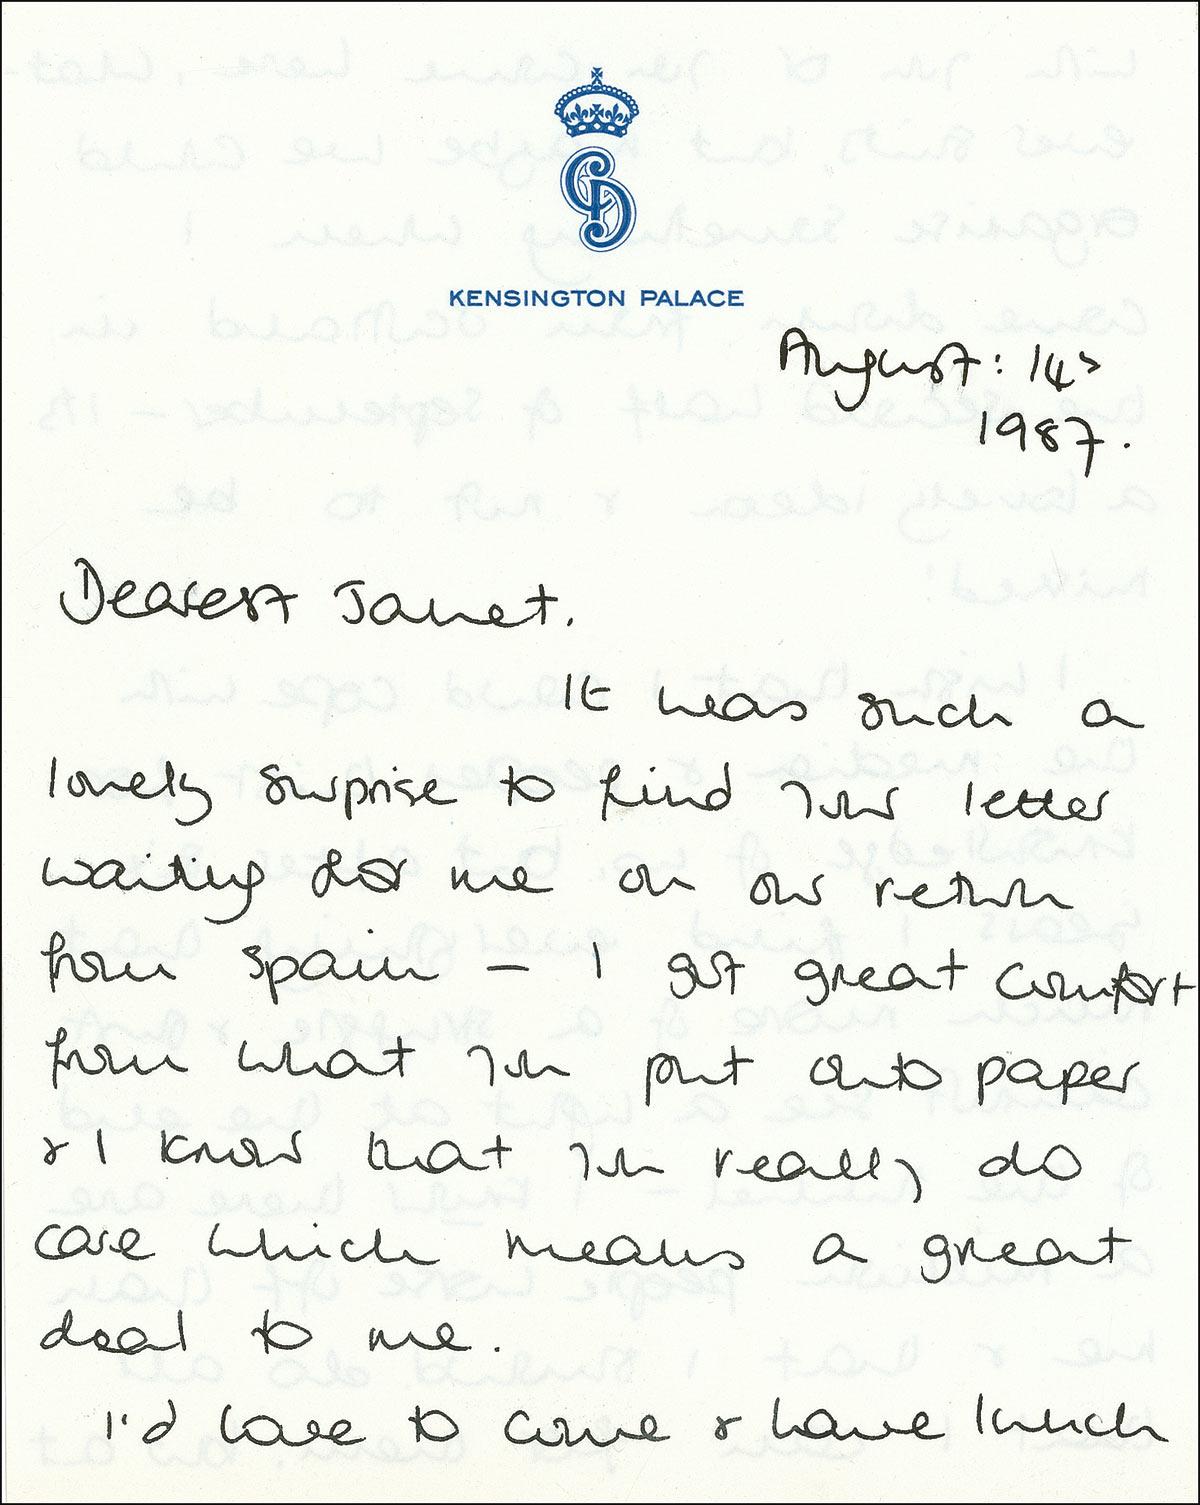 CD
KENSINGTON PALACE
August: 14th
1987.
Dearest Janet.
It was such a
lovely surprise to find your letter
waiting for me on our return
from Spain – I got great comfort
from what you put onto paper
& I know that you really do
care which means a great
deal to me.
I'd love to come & have lunch